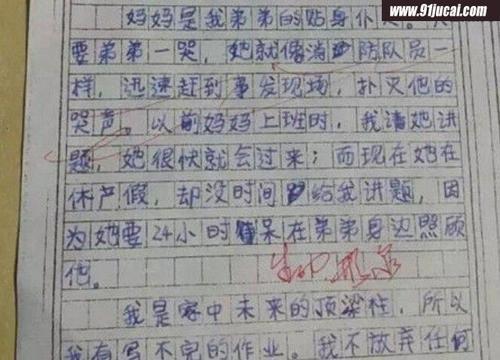 www.91jucai.com
妈妈是我弟弟的贴身仆人。只
要弟弟一哭，她就像消防队员一
样，迅速赶到事发现场，扑灭他的
哭声。以前妈妈上班时，我请她讲
题，她很快就会过来；而现在她在
休产假，却没时间给我讲题，因
为她要24小时呆在弟弟身边照顾
他。
生动形象
我是家中未来的顶梁柱，所以
我有写不完的作业。我不放弃任何